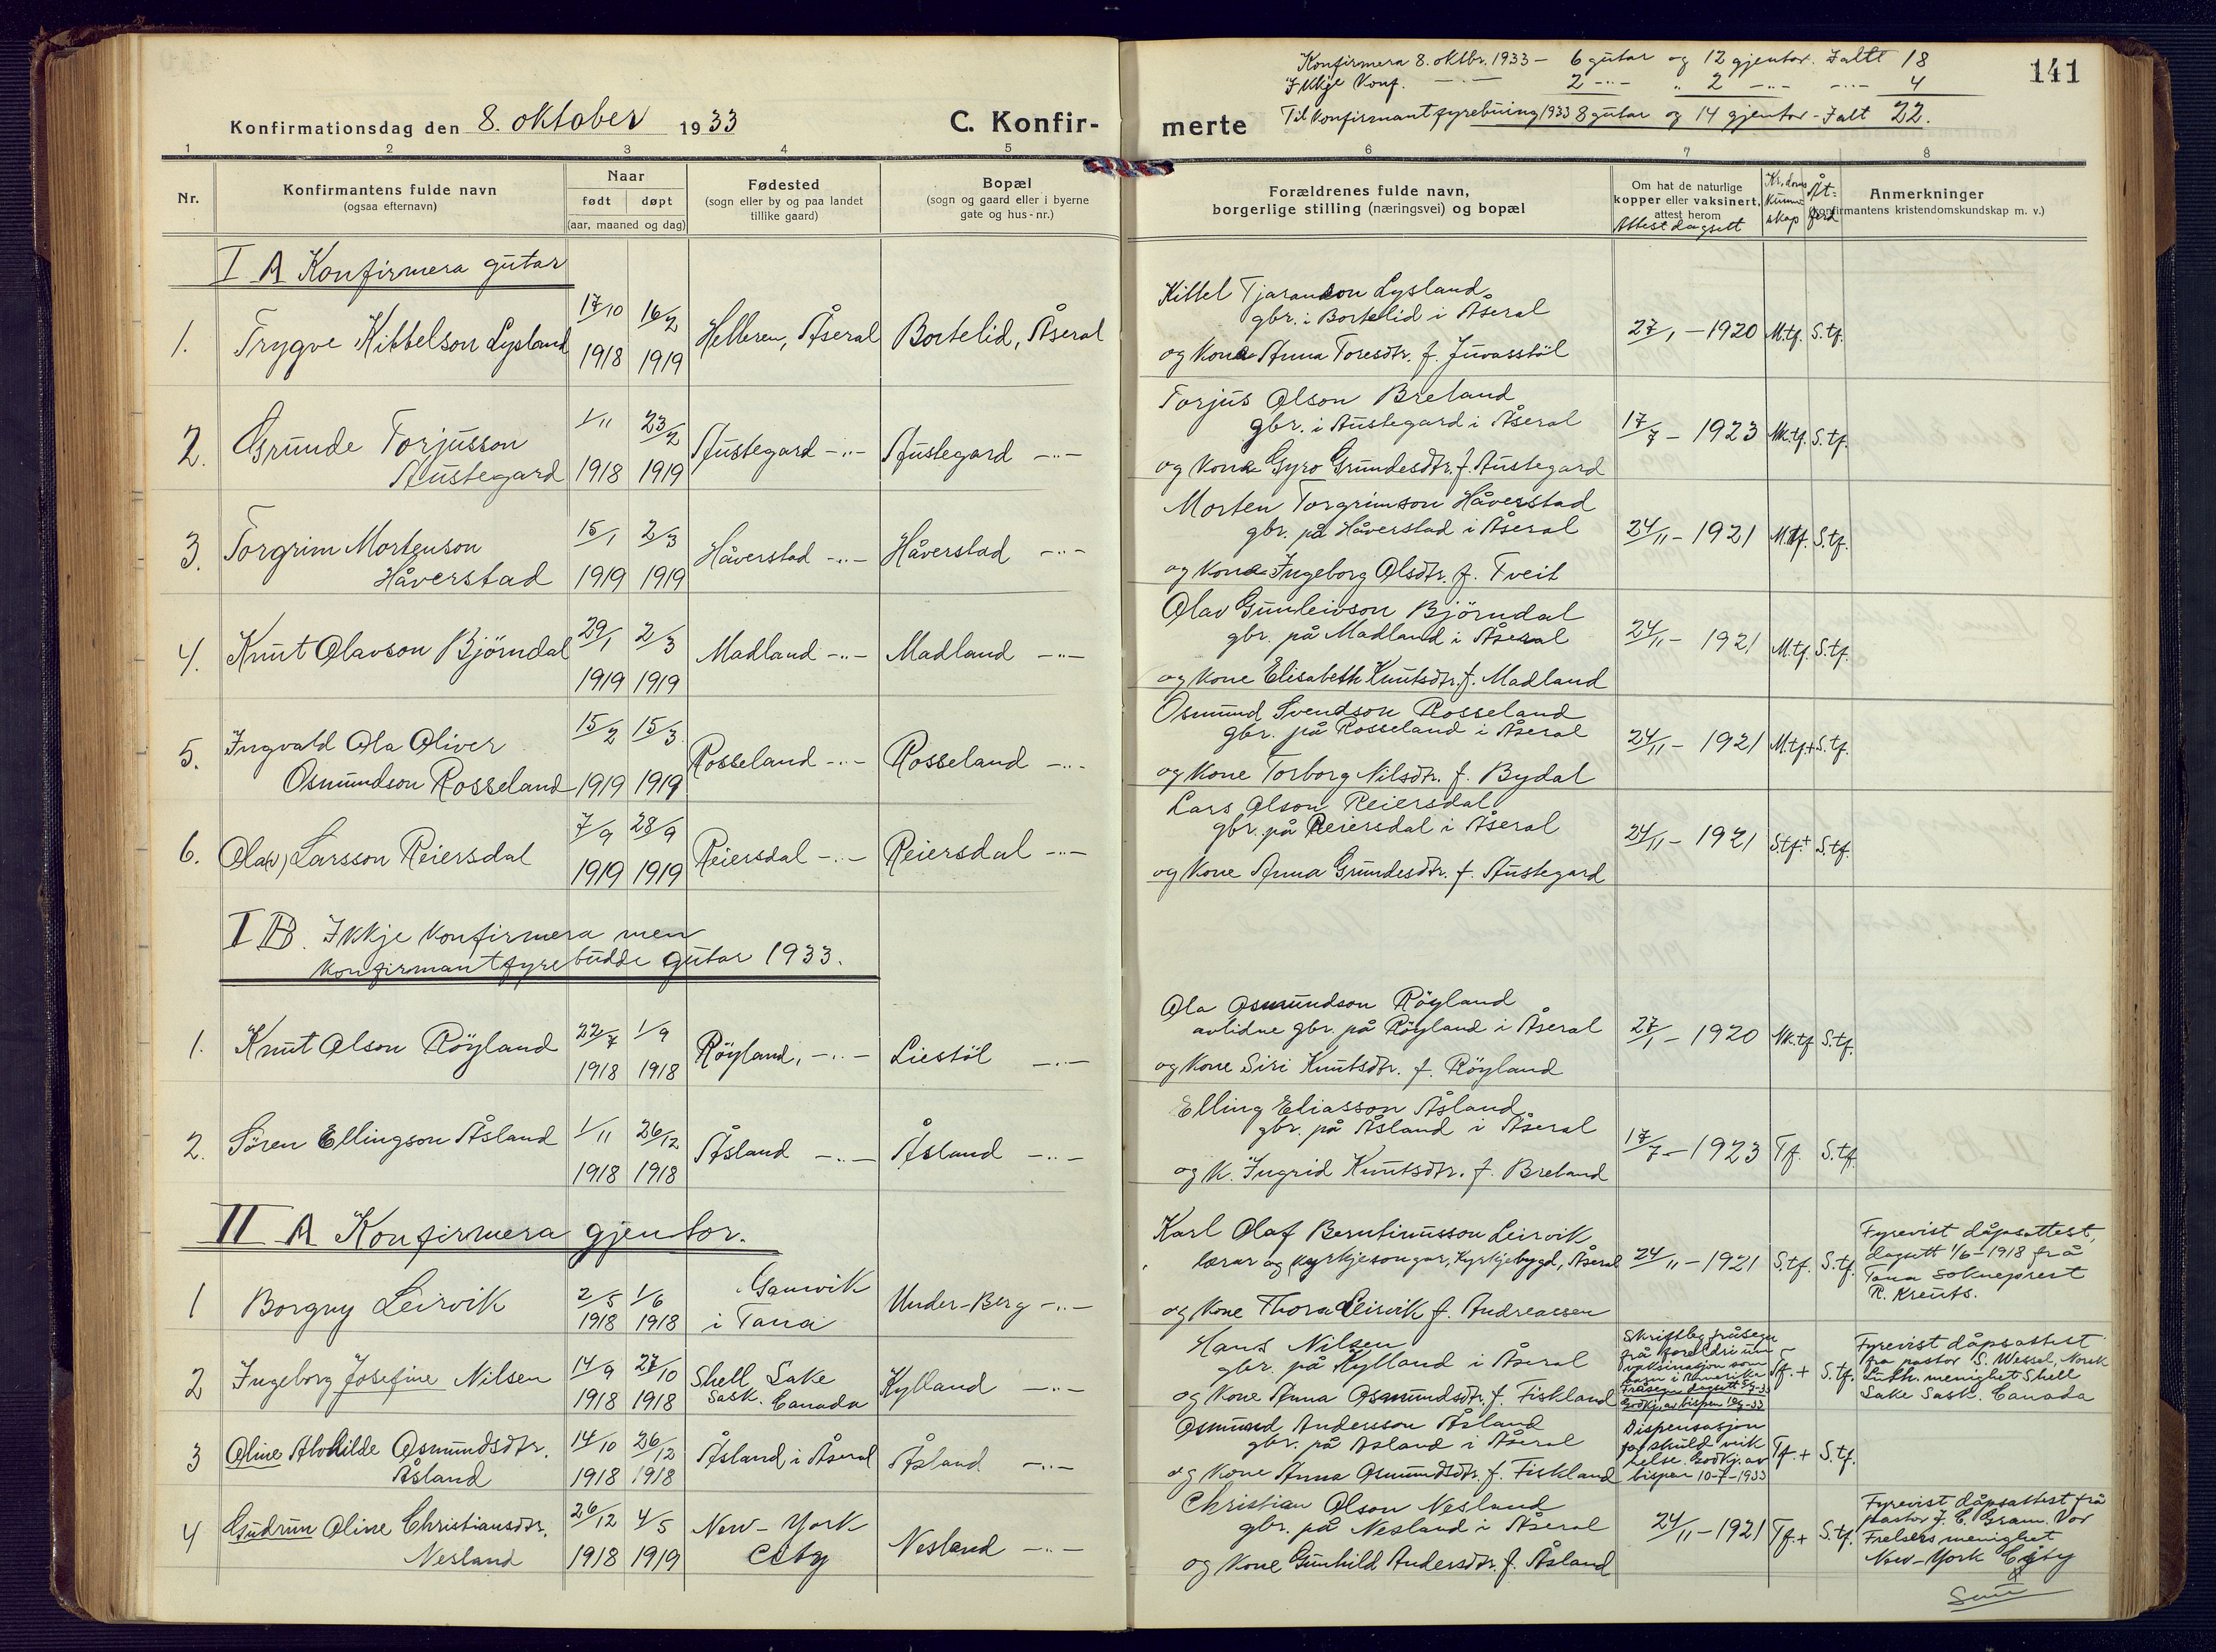 Konfirmationsdag den 8. oktober 1933
C. Konfir-
1 2 3 4 5
Nr.
Konfirmantens fulde navn
(ogsaa efternavn)
Naar
født døpt
(aar, maaned og dag)
Fødested
(sogn eller by og paa landet
tillike gaard)
Bopæl
(sogn og gaard eller i byerne
gate og hus-nr.)
I A Konfirmera gutar
1. Trygve Kittelson Lysland 17/10 1918 16/2 1919 Helleren, Åseral Bortelid, Åseral
2. Grunde Torjusson
Austegard 1/11 1918 23/2 1919 Austegard -"- Austegard -"-
3. Torgrim Mortenson
Håverstad 15/1 1919 2/3 1919 Håverstad -"- Håverstad -"-
4. Knut Olavson Björndal 29/1 1919 2/3 1919 Madland -"- Madland -"-
5. Ingvald Ola Oliver
Osmundson Rosseland 15/2 1919 15/3 1919 Rosseland -"- Rosseland -"-
6. Ola(v) Larsson Reiersdal 7/9 1919 28/9 1919 Reiersdal -"- Reiersdal -"-
I B. Ikkje konfirmera men
konfirmantfyrebudde gutar 1933.
1. Knut Olson Röyland 22/7 1918 1/9 1918 Röyland, -"- Liestöl -"-
2. Sören Ellingson Åsland 1/11 1918 26/12 1918 Åsland -"- Åsland -"-
II A Konfirmera gjentor.
1 Borgny Leirvik 2/5 1918 1/6 1918 Gamvik
i Tana Under-Berg -"-
2 Ingeborg Josefine Nilsen 14/9 1918 27/10 1918 Shell Lake
Sask. Canada Kylland -"-
3 Oline Alvhilde Osmundsdtr.
Åsland 14/10 1918 26/12 1918 Åsland i Åseral Åsland -"-
4 Gudrun Oline Christiansdtr.
Nesland 26/12 1918 4/5 1919 New-York
City Nesland -"-
Konfirmera 8. oktbr. 1933 - 6 gutar og 12 gjentor. Ialt 18
Ikkje konf. -"- 2 -"- " 2 -"- -"- 4
Til konfirmantfyrebuing 1933 8 gutar og 14 gjentor - Ialt 22.
141
merte
6 7 8
Forældrenes fulde navn,
borgerlige stilling (næringsvei) og bopæl
Om hat de naturlige
kopper eller vaksinert,
attest herom
Attest dagsett
Kr.doms
kunn-
skap
Åt-
ferd
Anmerkninger
(konfirmantens kristendomskundskap m. v.)
Kittel Tjaranson Lysland
gbr. i Bortelid i Åseral
og kona Anna Toresdtr. f. Juvasstöl
27/1 - 1920 M.tf. S.tf.
Torjus Olson Breland
gbr. i Austegard i Åseral
og kona Gyro Grundesdtr. f. Austegard
17/7 - 1923 Mk.tf. S.tf.
Morten Torgrimson Håverstad
gbr. på Håverstad i Åseral
og kona Ingeborg Olsdtr. f. Tveit
24/11 - 1921 M.tf. S.tf.
Olav Gunleivson Björndal
gbr. på Madland i Åseral
og kone Elisabeth Knutsdtr. f. Madland
24/11 - 1921 M.tf. S.tf.
Osmund Svendson Rosseland
gbr. på Rosseland i Åseral
og kone Torborg Nilsdtr. f. Bydal
24/11 - 1921 M.tf+ S.tf.
Lars Olson Reiersdal
gbr. på Reiersdal i Åseral
og kone Anna Grundesdtr. f. Austegard
24/11 - 1921 S.tf.+ S.tf.
Ola Osmundson Röyland
avlidne gbr. på Röyland i Åseral
og kone Siri Knutsdtr. f. Röyland
27/1 - 1920 Mk.tf S.tf.
Elling Eliasson Åsland
gbr. på Åsland i Åseral
og k. Ingrid Knutsdtr. f. Breland
17/7 - 1923 Tf. S.tf.
Karl Olaf Berntinusson Leirvik
lærar og kyrkjesongar, Kyrkjebygd, Åseral
og kone Thora Leirvik f. Andreassen
24/11 - 1921 S.tf. S.tf.
Fyrevist dåpsattest,
dagsett 1/6-1918 frå
Tana sokneprest
R. Kreuts.
Hans Nilsen
gbr. på Kylland i Åseral
og kone Anna Osmundsdtr. f. Fiskland
Skriftleg fråsegn
frå foreldri um
vaksinasjon som
barn i Amerika
Godkj. av bispen
Tf. + S.tf.
Fyrevist dåpsattest
fra pastor S. Wessel, Norsk
Luth. menighet Shell
Lake Sask. Canada
Osmund Andersson Åsland
gbr. på Åsland i Åseral
og kone Anna Osmundsdtr. f. Fiskland
Dispensasjon
for skuld veik
helse. Godkj. av
bispen 10-7-1933
Tf + S.tf.
Christian Olson Nesland
gbr. på Nesland i Åseral
og kone Gunhild Andersdtr. f. Åsland
24/11 - 1921 Tf. + S.tf.
Fyrevist dåpsattest frå
pastor J. C. Gram. Vor
Frelsers menighet
New-York City
Snu